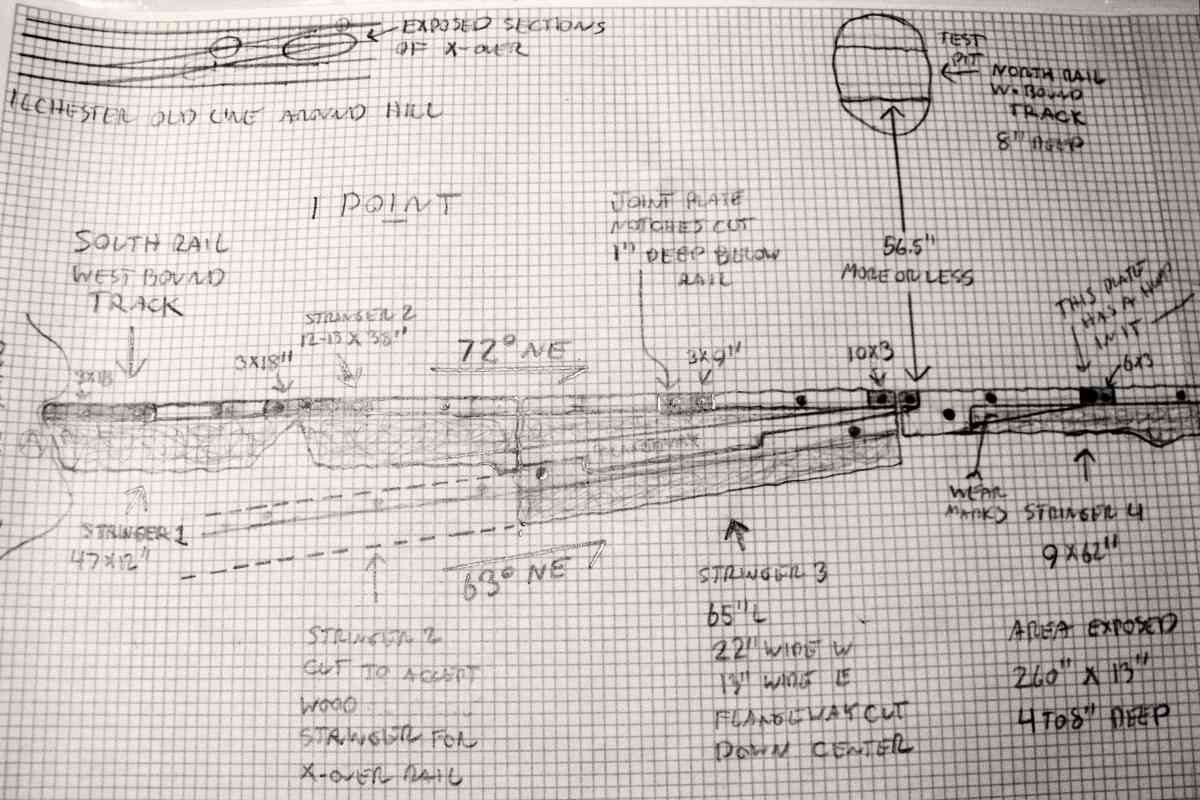 EXPOSED SECTIONS
OF X-OVER
ILCHESTER OLD LINE AROUND HILL
TEST
PIT
NORTH RAIL
W. BOUND
TRACK
8" DEEP
1 POINT
SOUTH RAIL
WEST BOUND
TRACK
JOINT PLATE
NOTCHES CUT
1" DEEP BELOW
RAIL
56.5"
MORE OR LESS
THIS PLATE
HAS A HUMP
IN IT
STRINGER 2
12-13 X 38"
72° NE
3X18
3X18"
3X9"
10X3
6X3
FLANGEWAY
WEAR
MARKS
STRINGER 1
47X12"
63° NE
STRINGER 2
CUT TO ACCEPT
WOOD
STRINGER FOR
X-OVER RAIL
STRINGER 3
65" L
22" WIDE W
13" WIDE E
FLANGEWAY CUT
DOWN CENTER
STRINGER 4
9 X 62"
AREA EXPOSED
260" X 13"
4 TO 8" DEEP